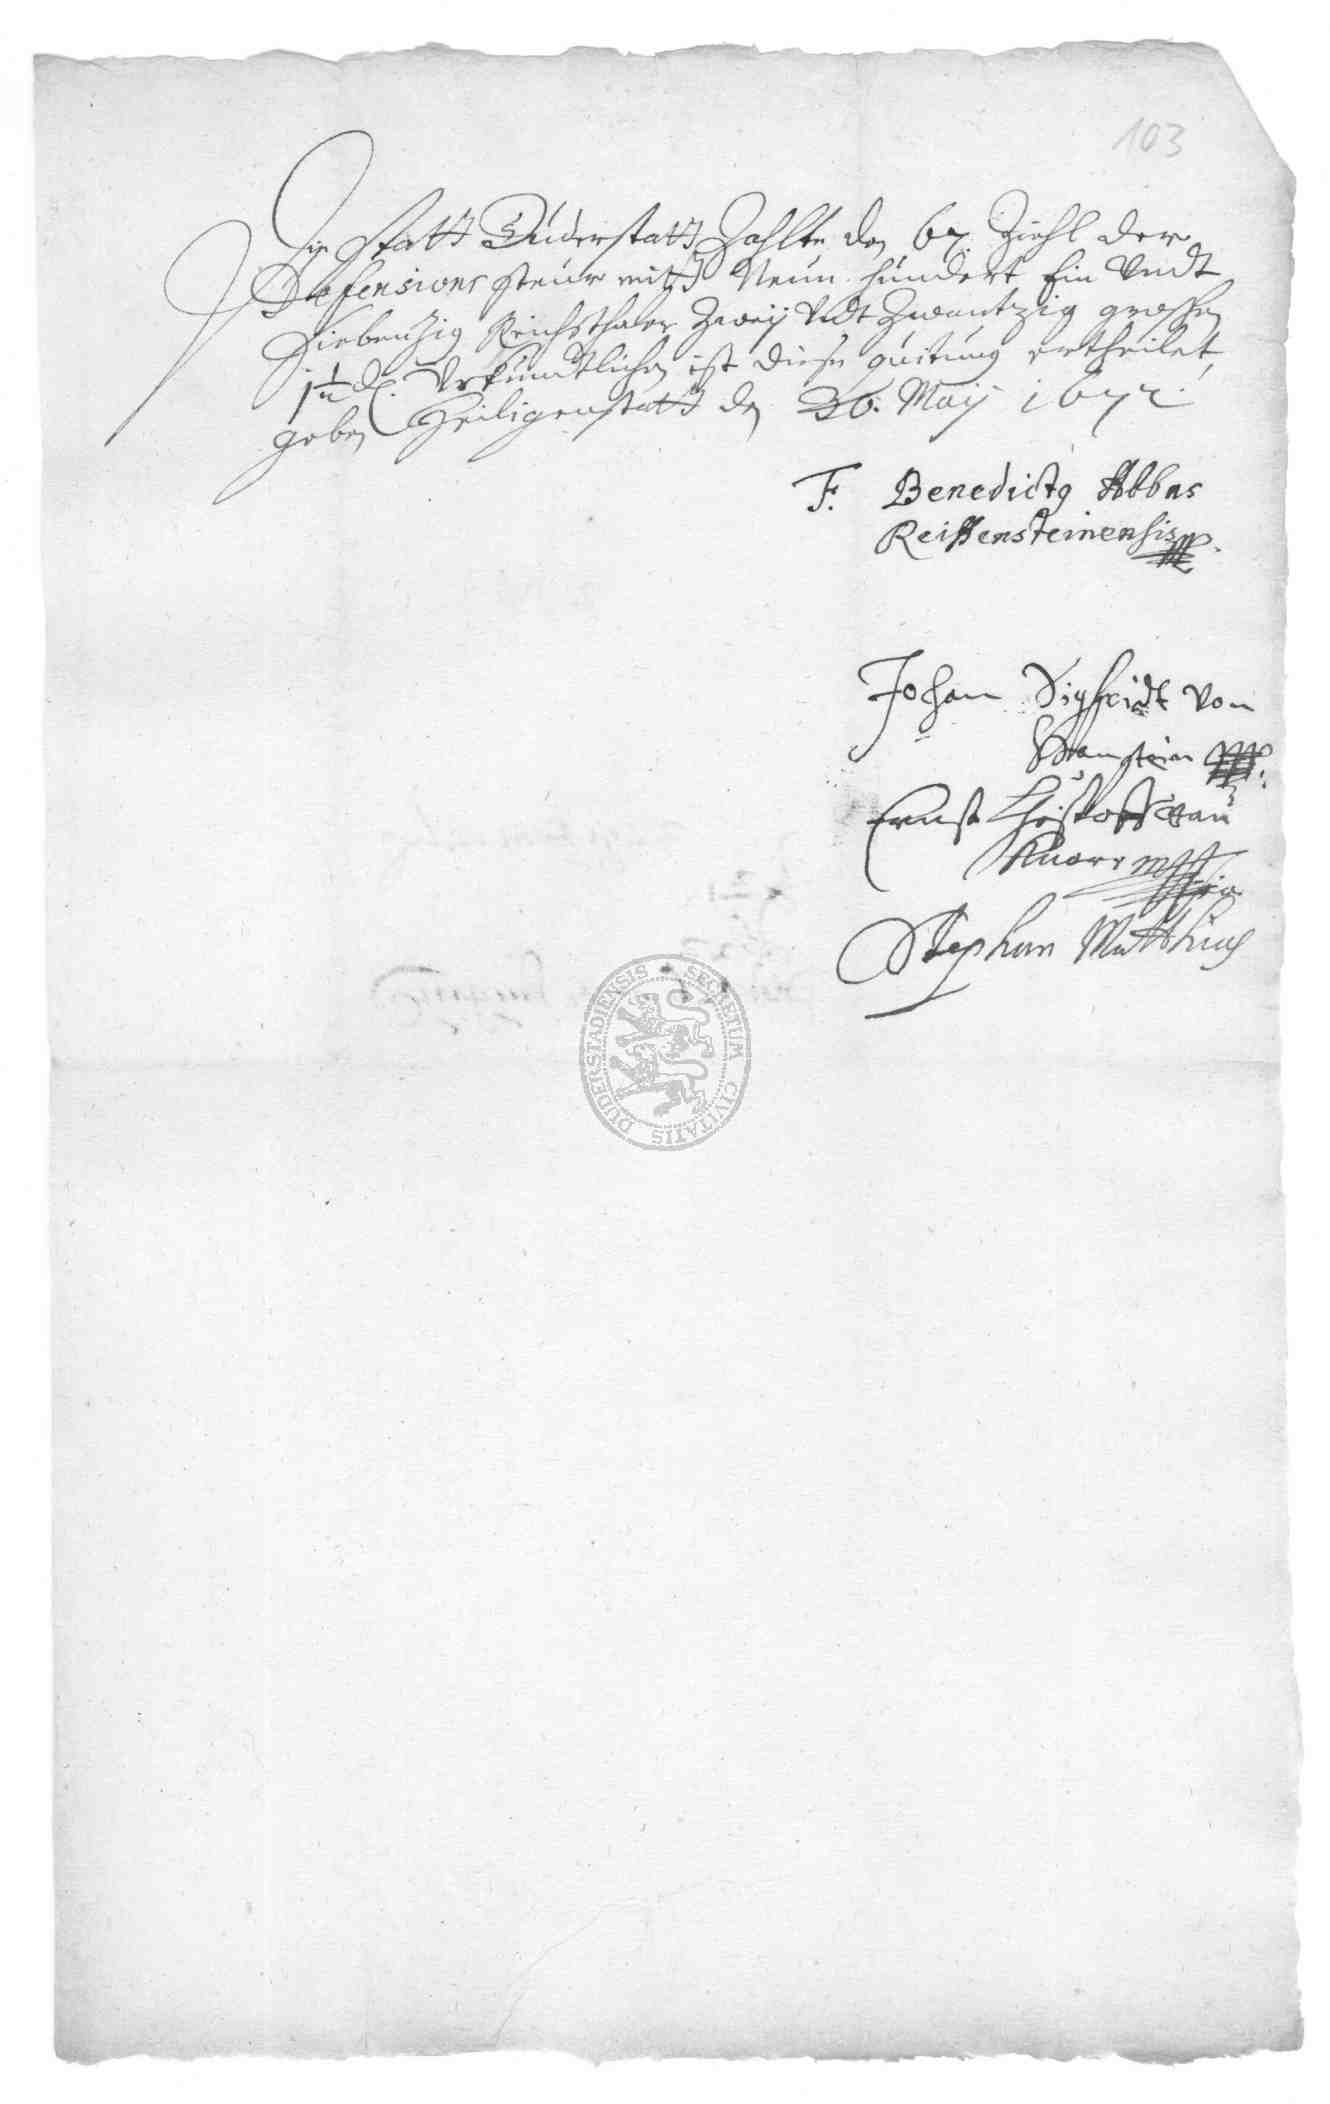 103
Die statt Duderstatt Zahlte den 67. Ziehl der
Defensions steur mitt Neun hundert Ein Undt
Siebenzig Reichsthaler Zweij Undt Zwantzig groschen
1½ d. Uhrkundtlichen ist diese quitung ertheilet,
geben Heiligenstatt den 26. Maij 1672.
F. Benedictq Abbas
Reiffensteinensis
Johan Sigfridt von
Hanstein
Ernst Christoff
Knorr
Stephan Matthias
SECRETUM CIVITATIS DUDERSTADIENSIS